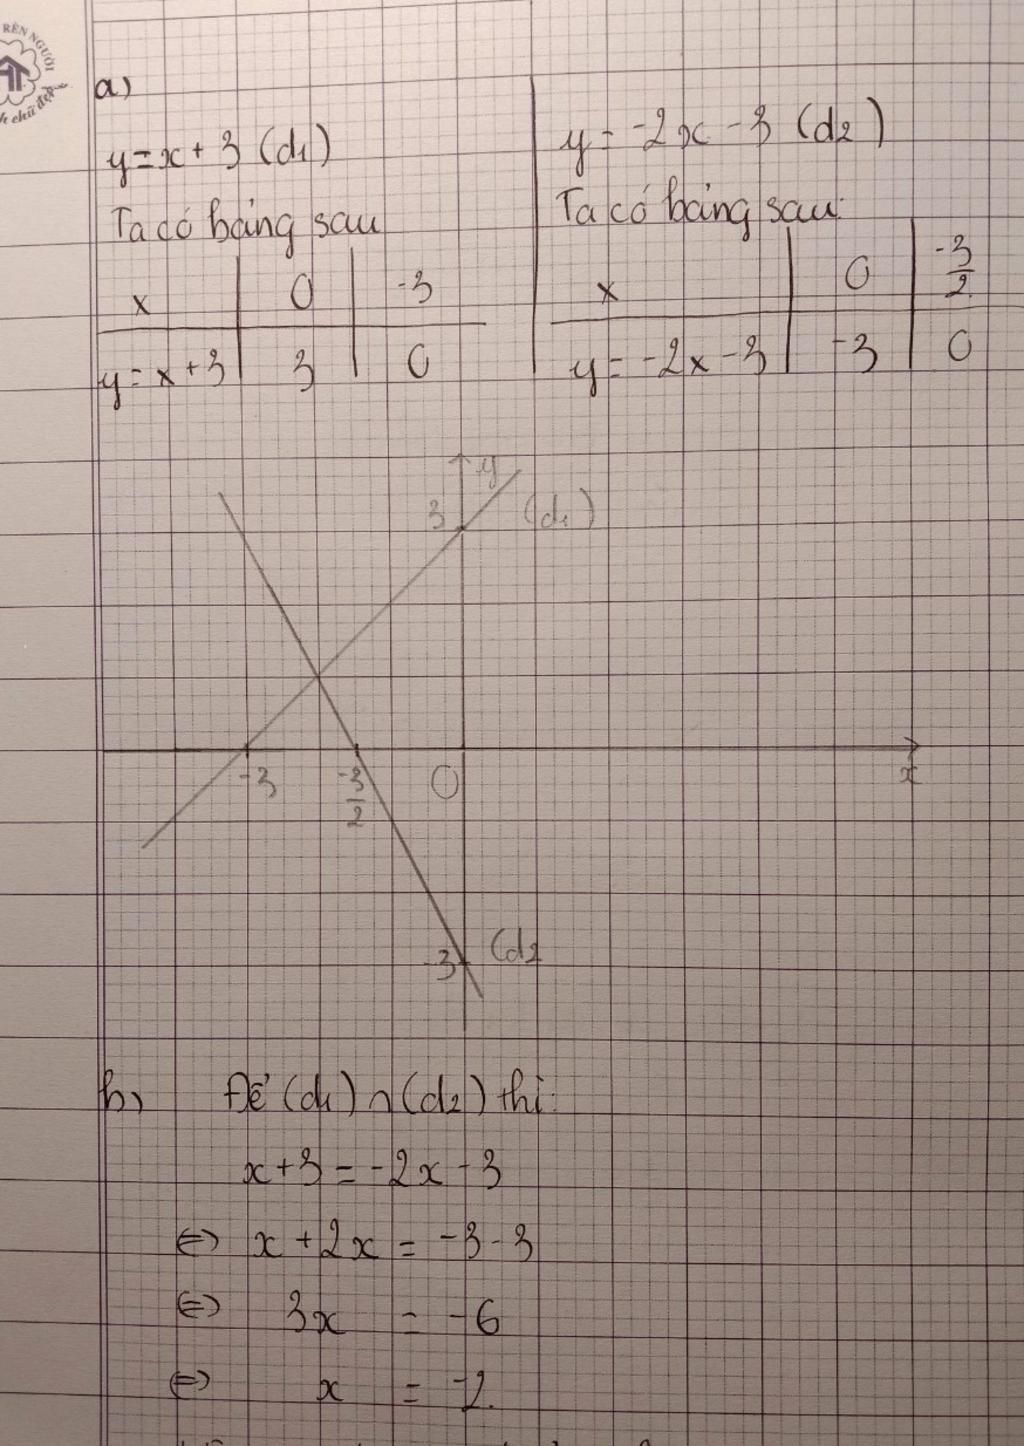 RÈN NGƯỜI
chữ đẹp
a)
y = x + 3 (d1)
Ta có bảng sau
x 0 -3
y = x + 3 3 0
y = -2x - 3 (d2)
Ta có bảng sau:
x 0 -3/2
y = -2x - 3 -3 0
y
3 (d1)
-3 -3/2 O x
-3 (d2
b) Để (d1) ∩ (d2) thì:
x + 3 = -2x - 3
⇔ x + 2x = -3 - 3
⇔ 3x = -6
⇔ x = -2.